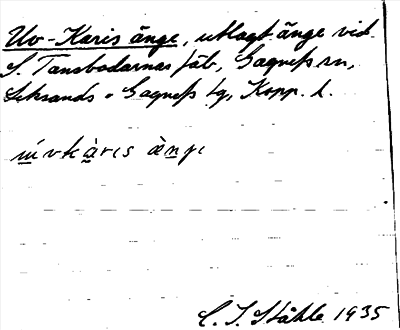 Uv-Karis änge, utlagt änge vid
S. Tansbodarnas fäb, Gagnefs sn,
Leksands o Gagnefs tg, Kopp. l.
ɯ́vkàrɩs ànɟɩ
C. I. Ståhle 1935